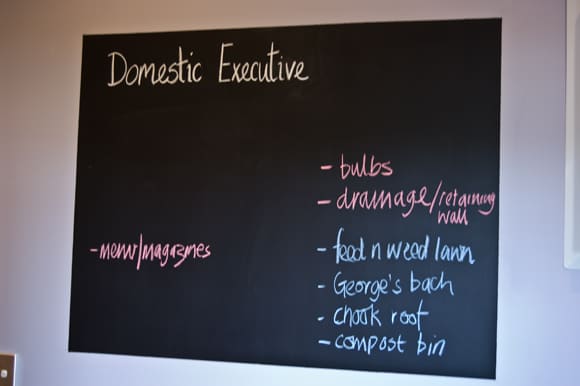 Domestic Executive
- bulbs
- drainage/retaining
wall
- menu/magazines
- feed n weed lawn
- George's bach
- chook roof
- compost bin